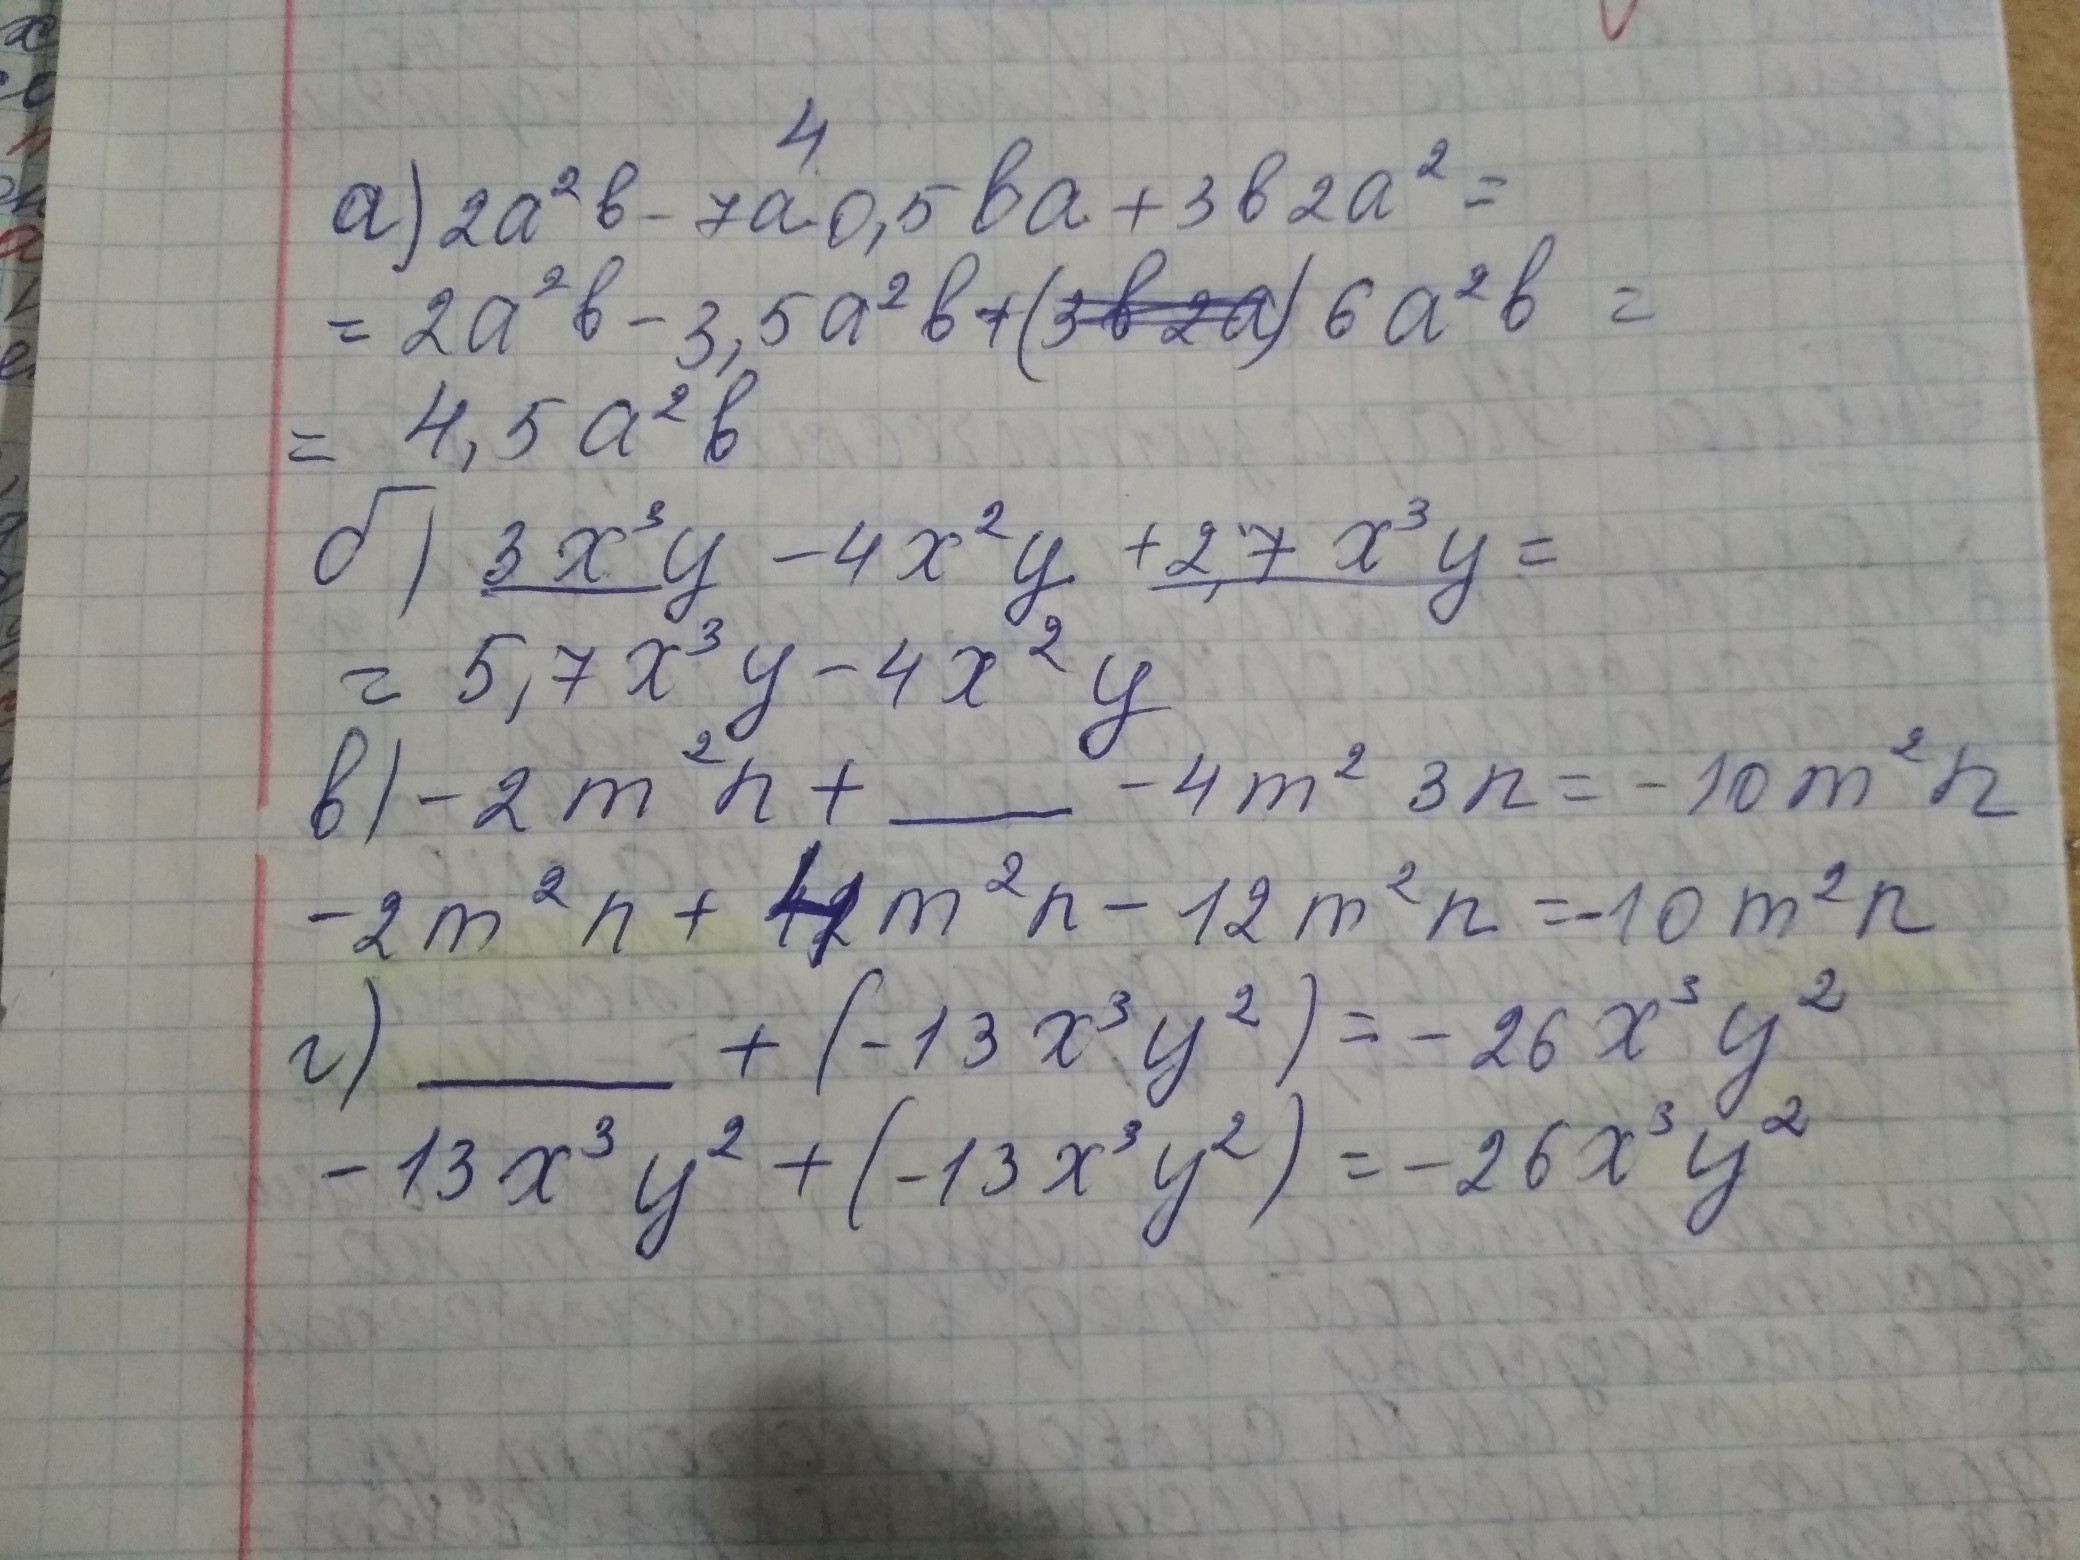 4
а) 2a²b - 7a·0,5ba + 3b2a² =
= 2a²b - 3,5a²b + (3b2a) 6a²b =
= 4,5a²b
б) 3x³y - 4x²y + 2,7x³y =
= 5,7x³y - 4x²y
в) -2m²n + ___ - 4m² 3n = -10m²n
-2m²n + 4m²n - 12m²n = -10m²n
г) ___ + (-13x³y²) = -26x³y²
-13x³y² + (-13x³y²) = -26x³y²